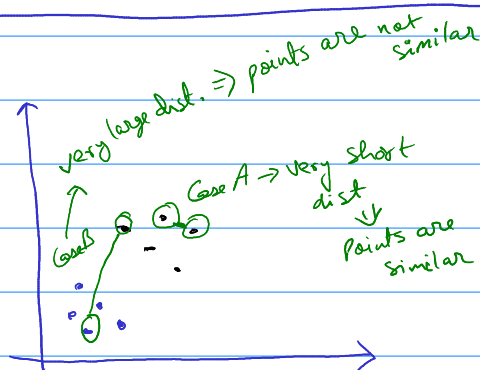 very large dist. ⇒ points are not
similar
Case A → very short
dist
⇓
points are
similar
Case B